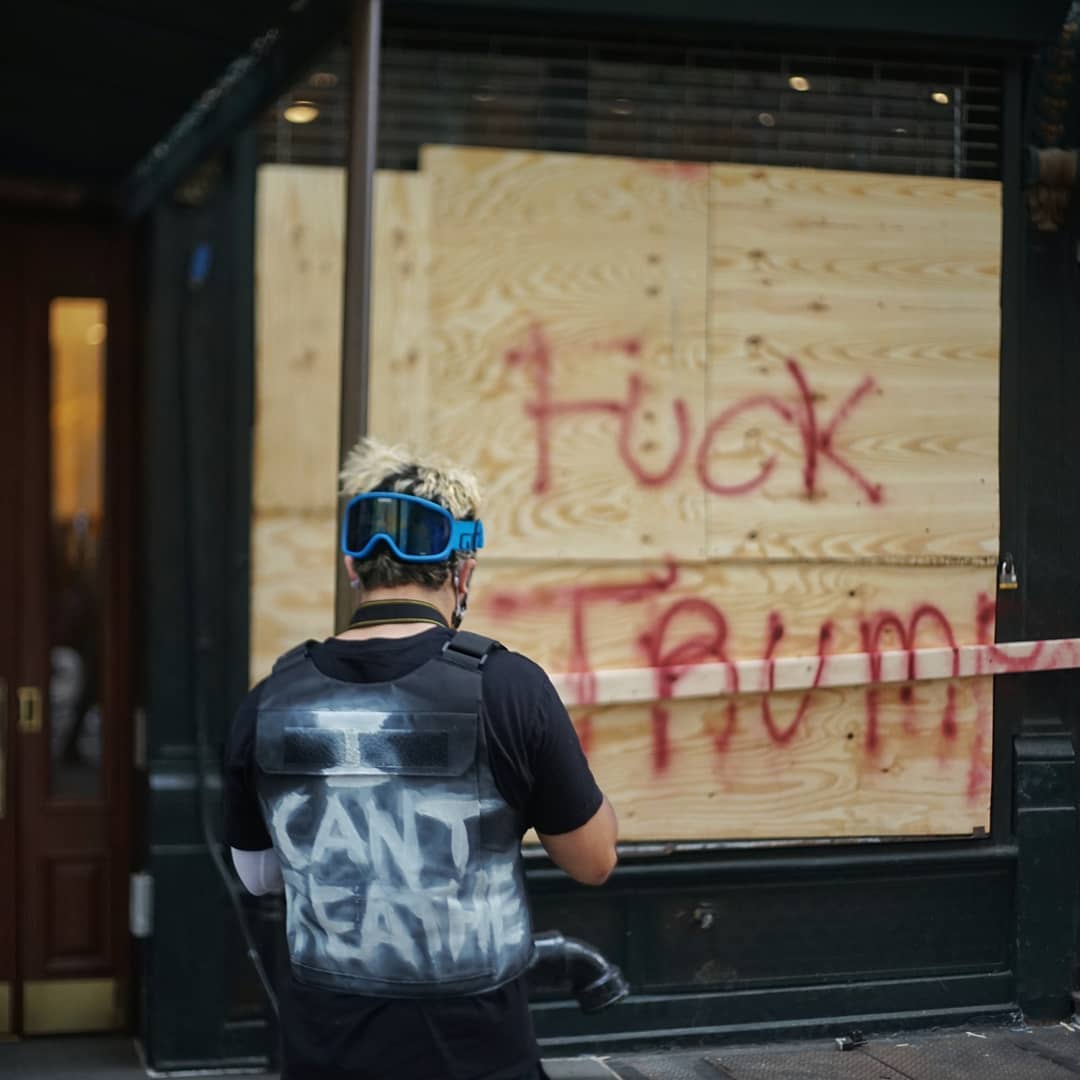 FUCK
TRUMP
I
CAN'T
BREATHE